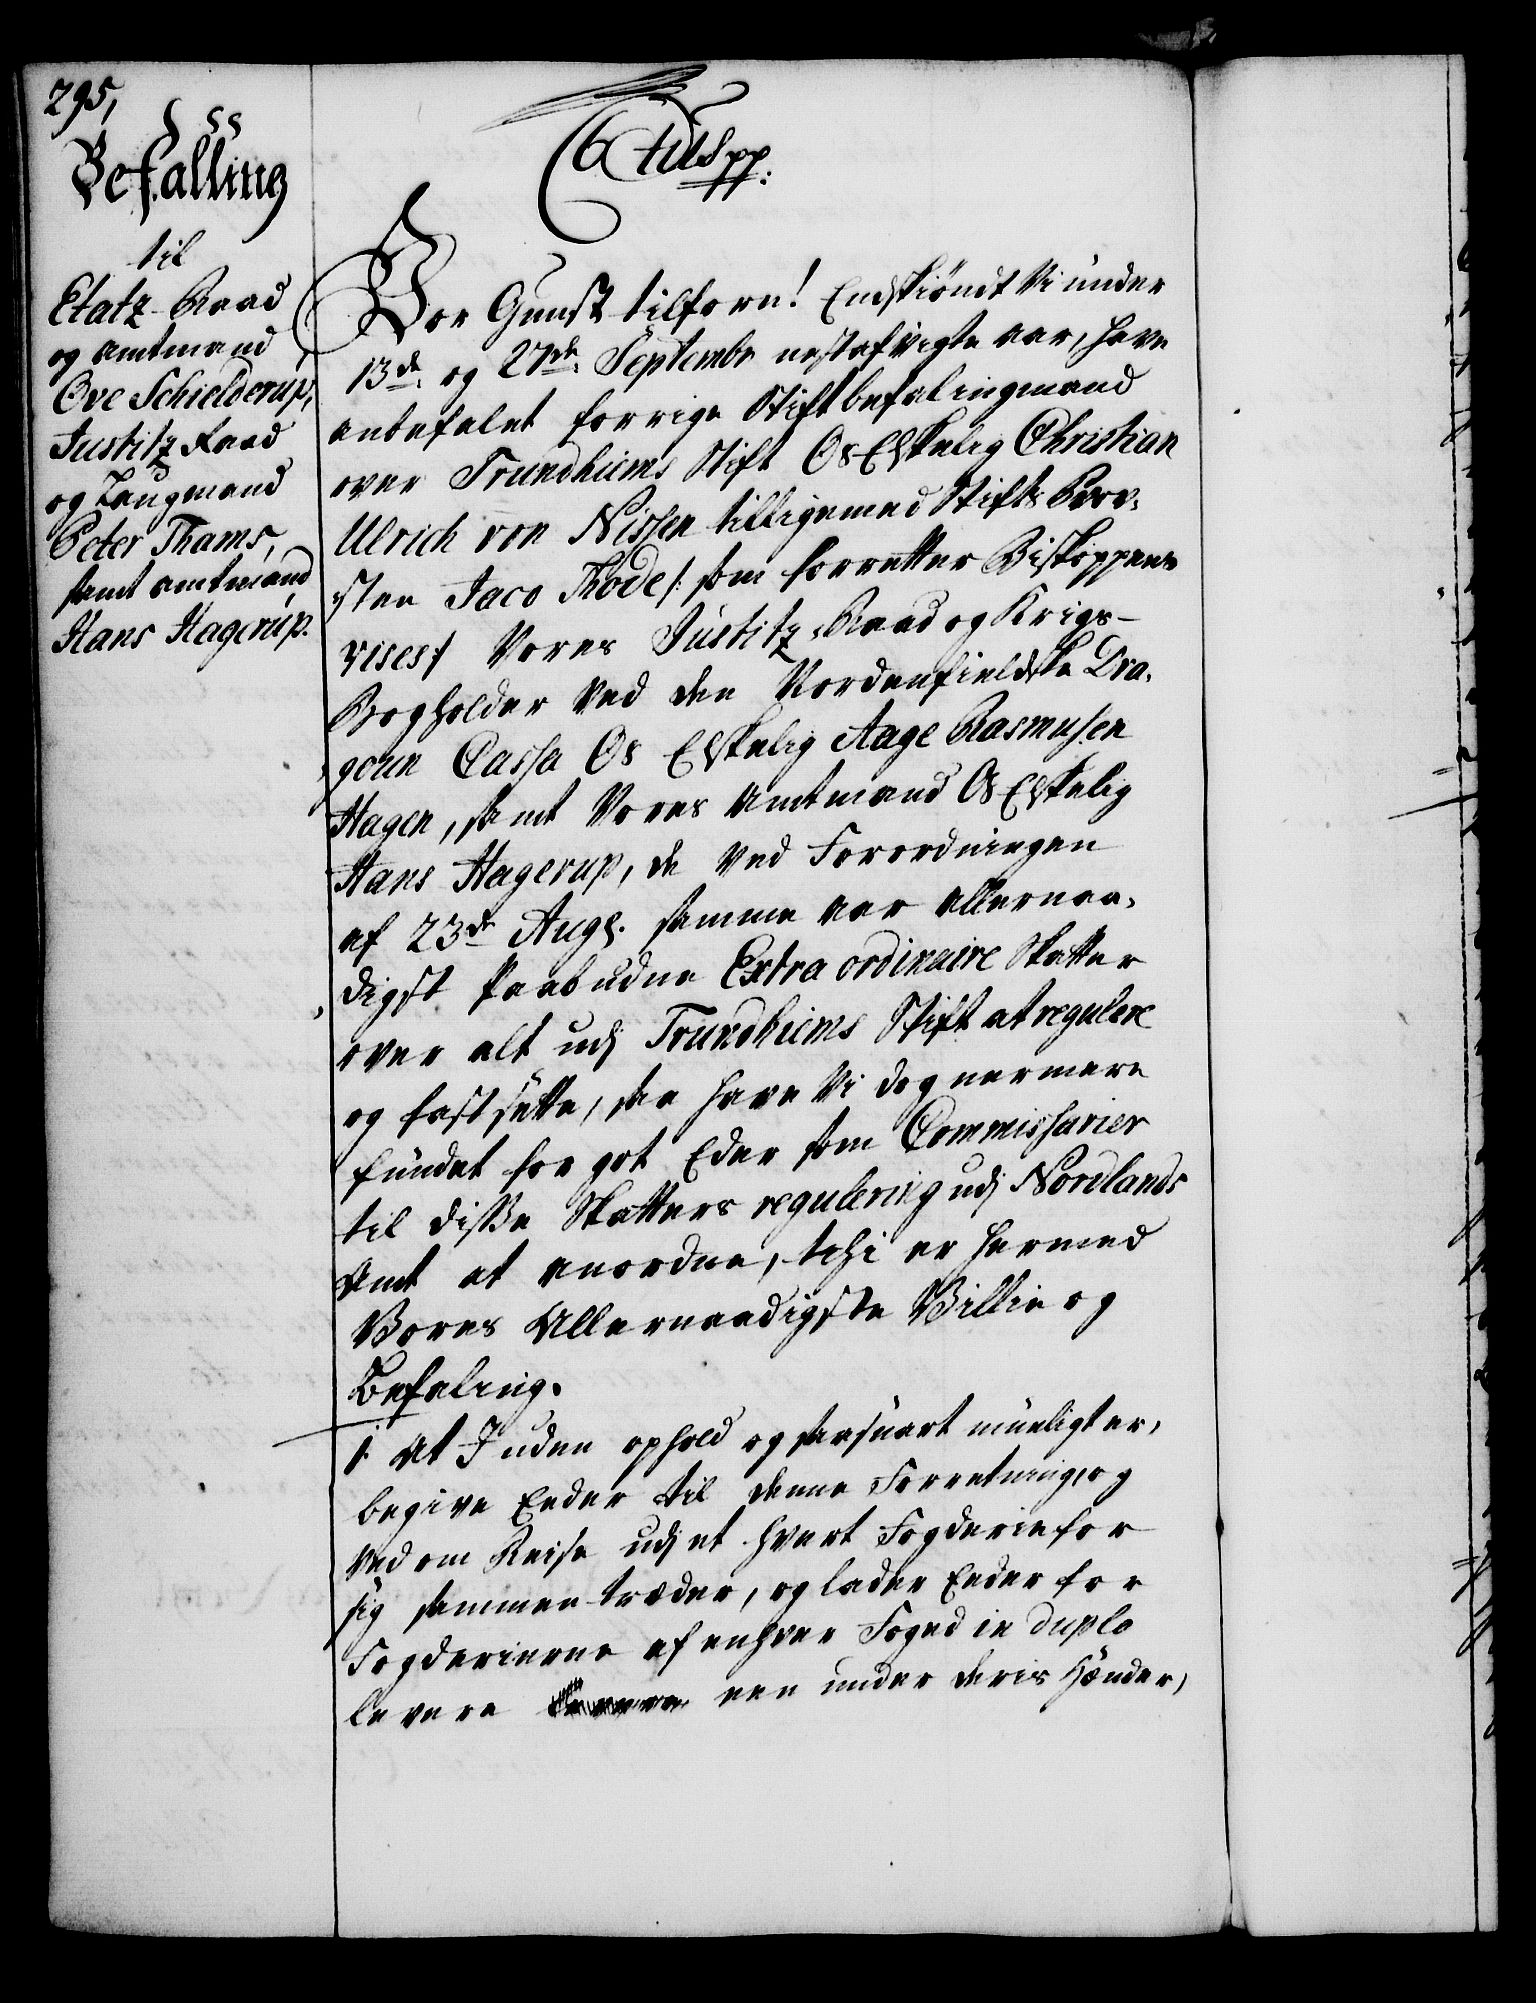 295,
Befalling
til
Etatz-Raad
og Amtmand
Ove Schielderup,
Justitz Raad
og Laugmand
Peter Thams,
samt Amtmand
Hans Hagerup.
C 6tus pp:
Vor Gunst tilforn! Endskiöndt Vi under
13de og 27de Septembr nestafvigte aar, have
anbefalet forrige Stiftbefalingsmand
over Trundhiems Stift Os Elskelig Christian
Ulrich von Nissen tilligemed Stifts Prov-
sten Jaco Kode /: som forretter Biskoppens
vises :/ Vores Justitz-Raad og Krigs-
Bogholder ved den Nordenfieldske Dra-
goun Cassa Os Elskelig Aage Rasmusen
Hagen, samt Vores Amtmand Os Elskelig
Hans Hagerup, de ved Forordningen
af 23de Augs. samme aar allernaa-
digst Paabudne Extra ordinaire Skatter
over alt udj Trundhiems Stift at regulere
og fastsette, saa have Vi dog nermere
fundet for got Eder som Commissarier
til disse Skatters regulering udj Nordlands
Amt at anordne, thi er hermed
Vores Allernaadigste Villie og
Befaling.
1. At I uden ophold og saasnart mueligt er,
begive Eeder til denne Forretning, og
ved om Reise udj et hvert Fogderie for
sig sammentræder, og lader Eeder for
Fogderierne af enhver Foged in duplo
levere een under deris Hænder,